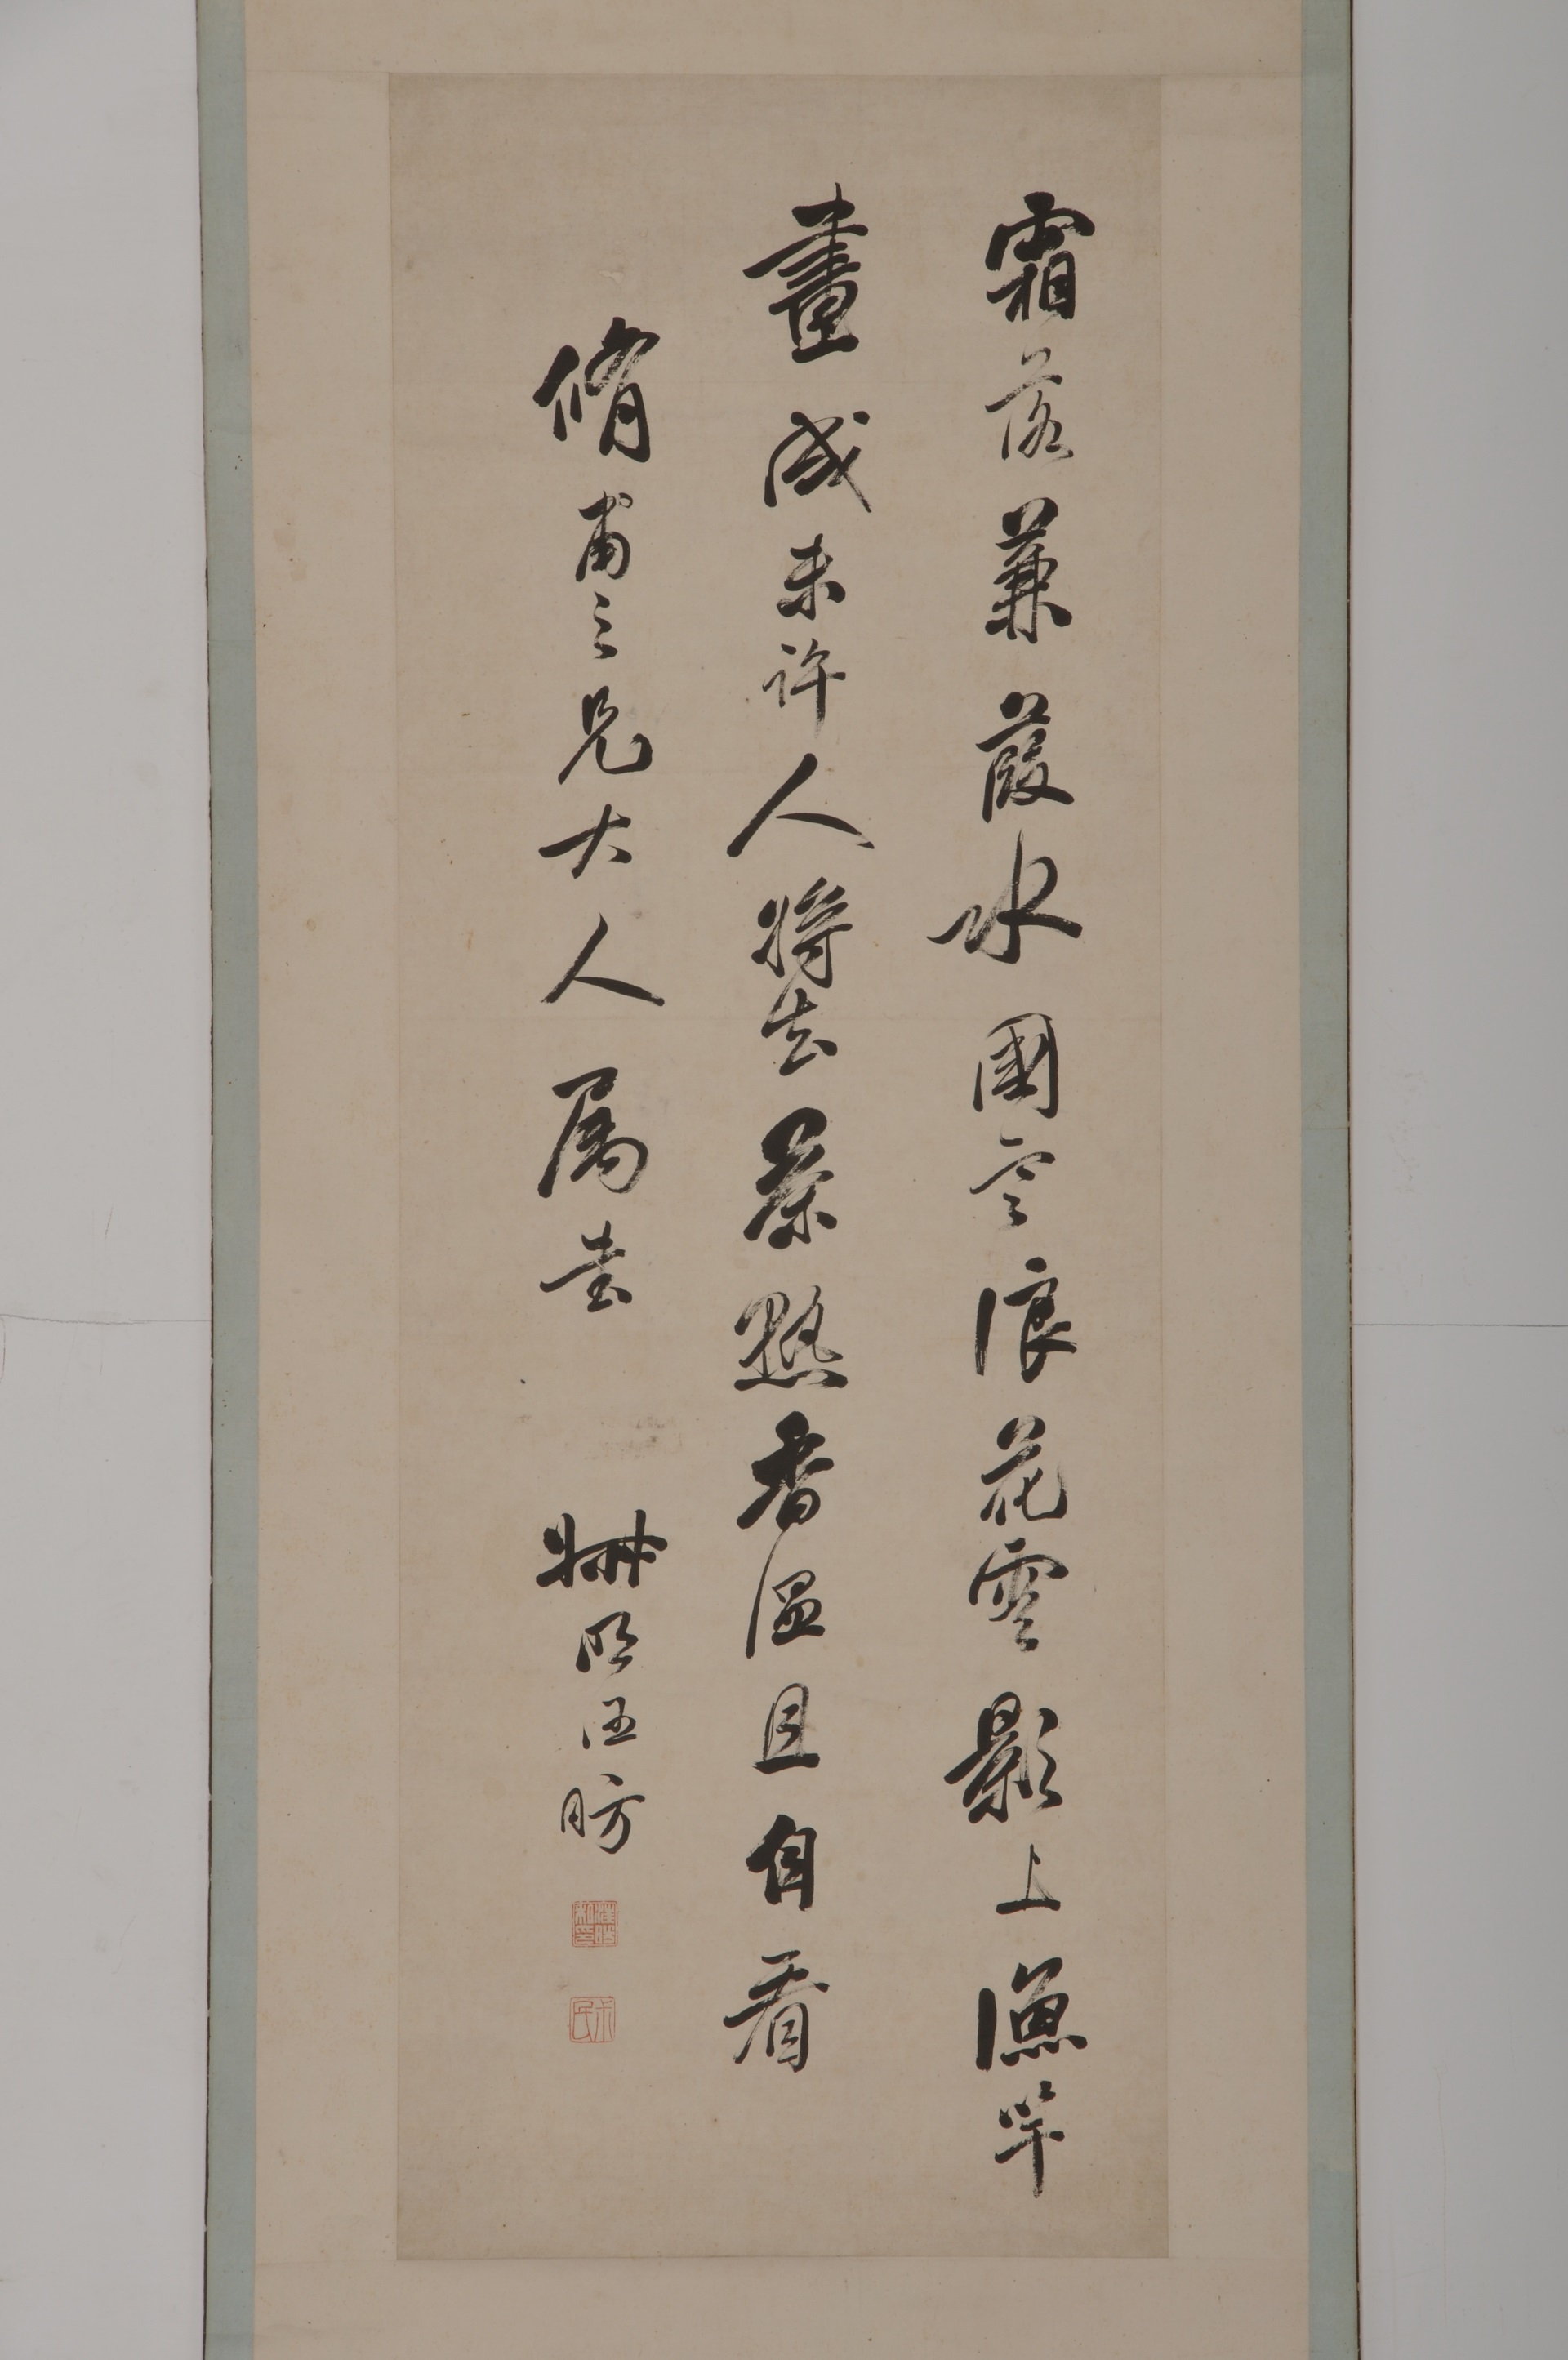 霜落蒹葭水國寒浪花雲影上漁竿
畫成未許人將去茶熟香溫且自看
脩甫三兄大人屬書 叔明汪昉